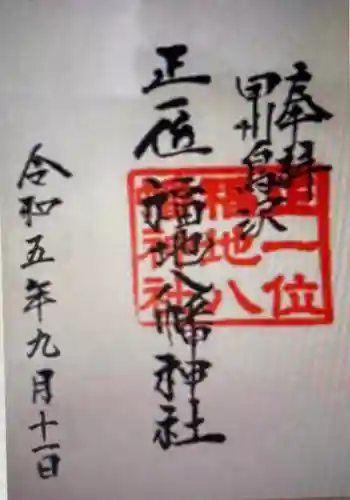 奉拝
甲州鳥沢
正一位
福地八幡神社
令和五年九月十一日
正一位
福地八
幡神社